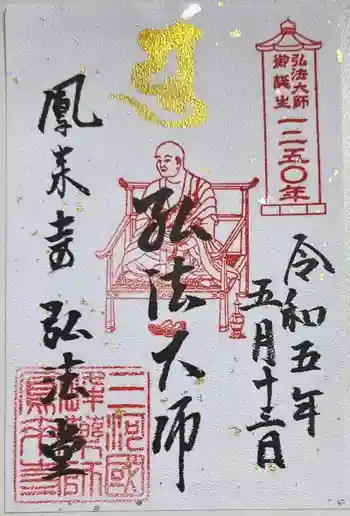 弘法大師
御誕生
一二五〇年
令和五年
五月十三日
弘法大師
鳳来寺 弘法堂
三河國